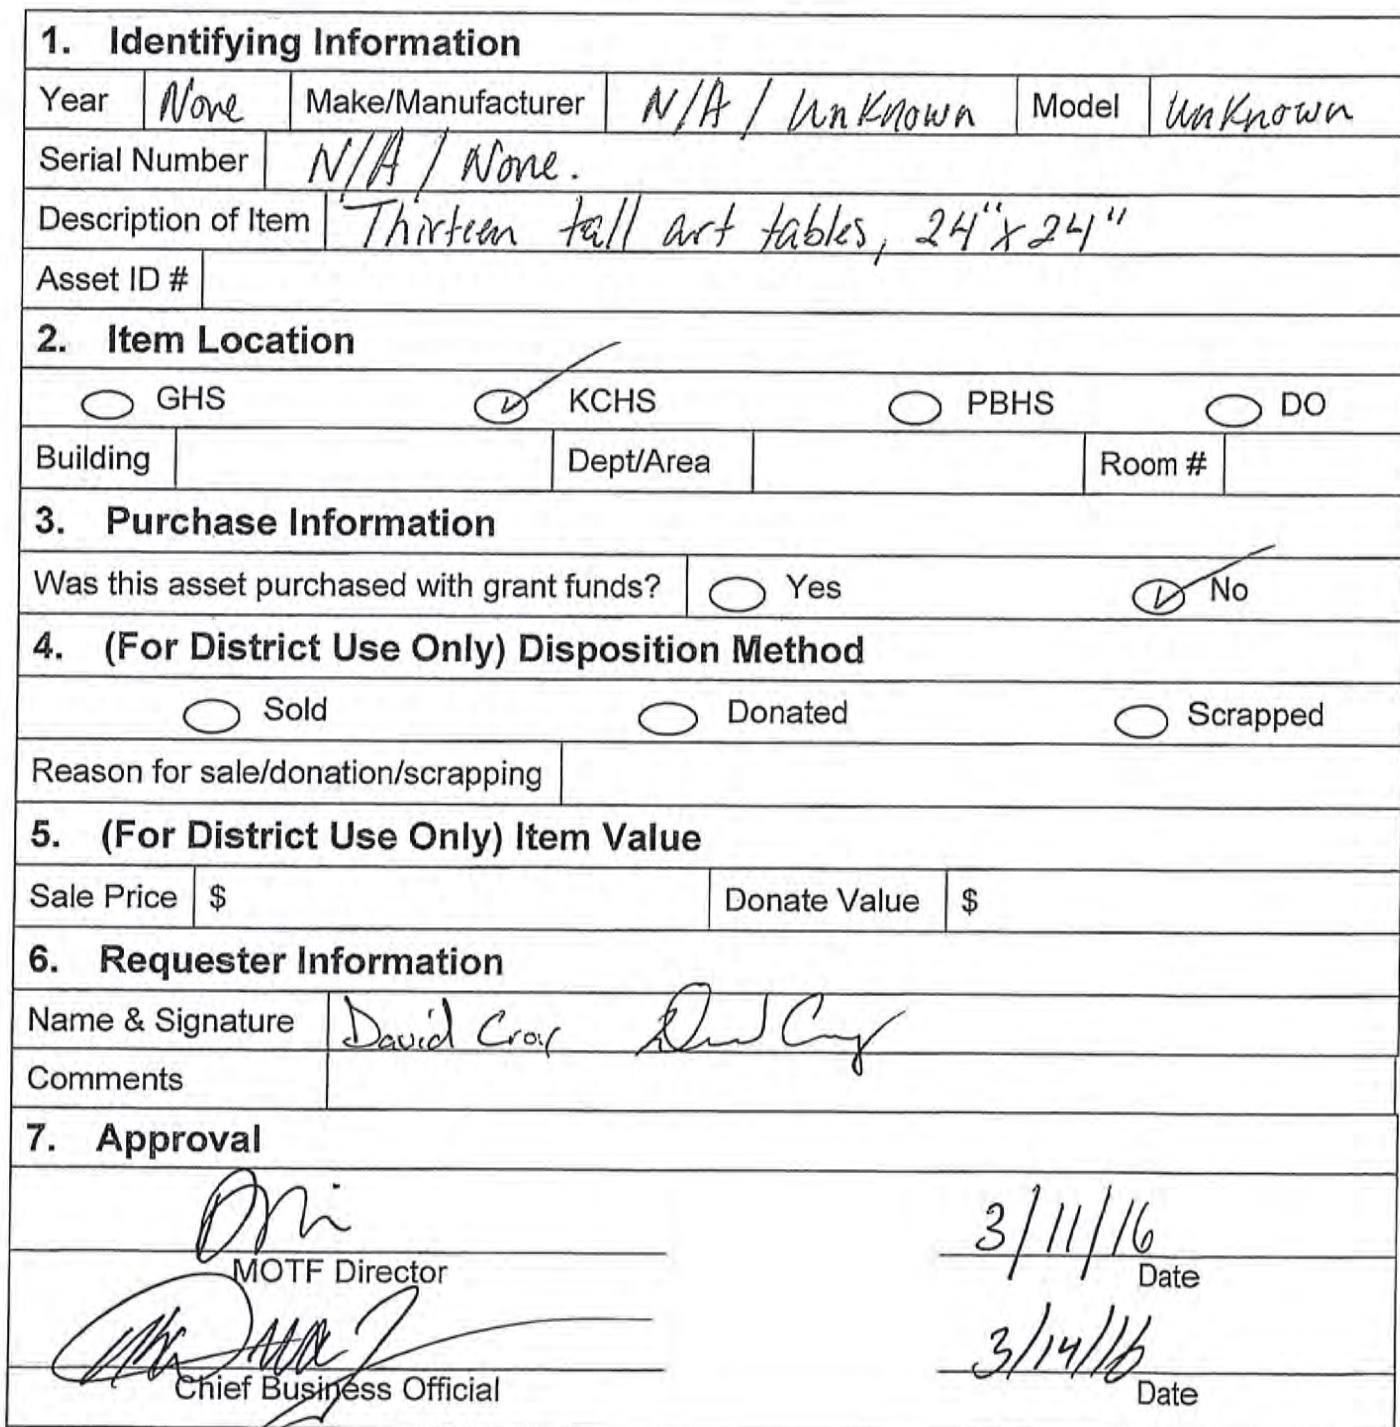 1. Identifying Information
Year None Make/Manufacturer N/A / Unknown Model Unknown
Serial Number N/A / None.
Description of Item Thirteen tall art tables, 24" x 24"
Asset ID #
2. Item Location
GHS KCHS PBHS DO
Building Dept/Area Room #
3. Purchase Information
Was this asset purchased with grant funds? Yes No
4. (For District Use Only) Disposition Method
Sold Donated Scrapped
Reason for sale/donation/scrapping
5. (For District Use Only) Item Value
Sale Price $ Donate Value $
6. Requester Information
Name & Signature David
Comments
7. Approval
3/11/16
MOTF Director Date
3/14/16
Chief Business Official Date